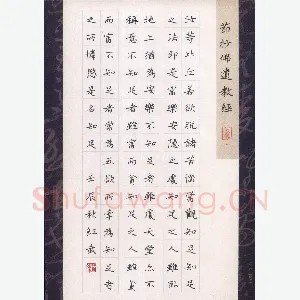 節抄佛遺教經
汝等比丘若欲脫諸苦惱當觀知足知足
之法即是富樂安隱之處知足之人雖臥
地上猶為安樂不知足者雖處天堂亦不
稱意不知足者雖富而貧知足之人雖貧
而富不知足者常為五欲所牽為知足者
之所憐愍是名知足 壬辰秋紅
Shufawang.CN